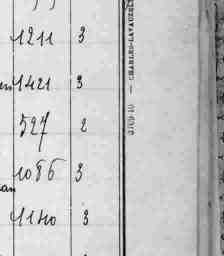 1211 3
1421 3
527 2
1086 3
1140 3
CHARLES-LAVAUZELLE